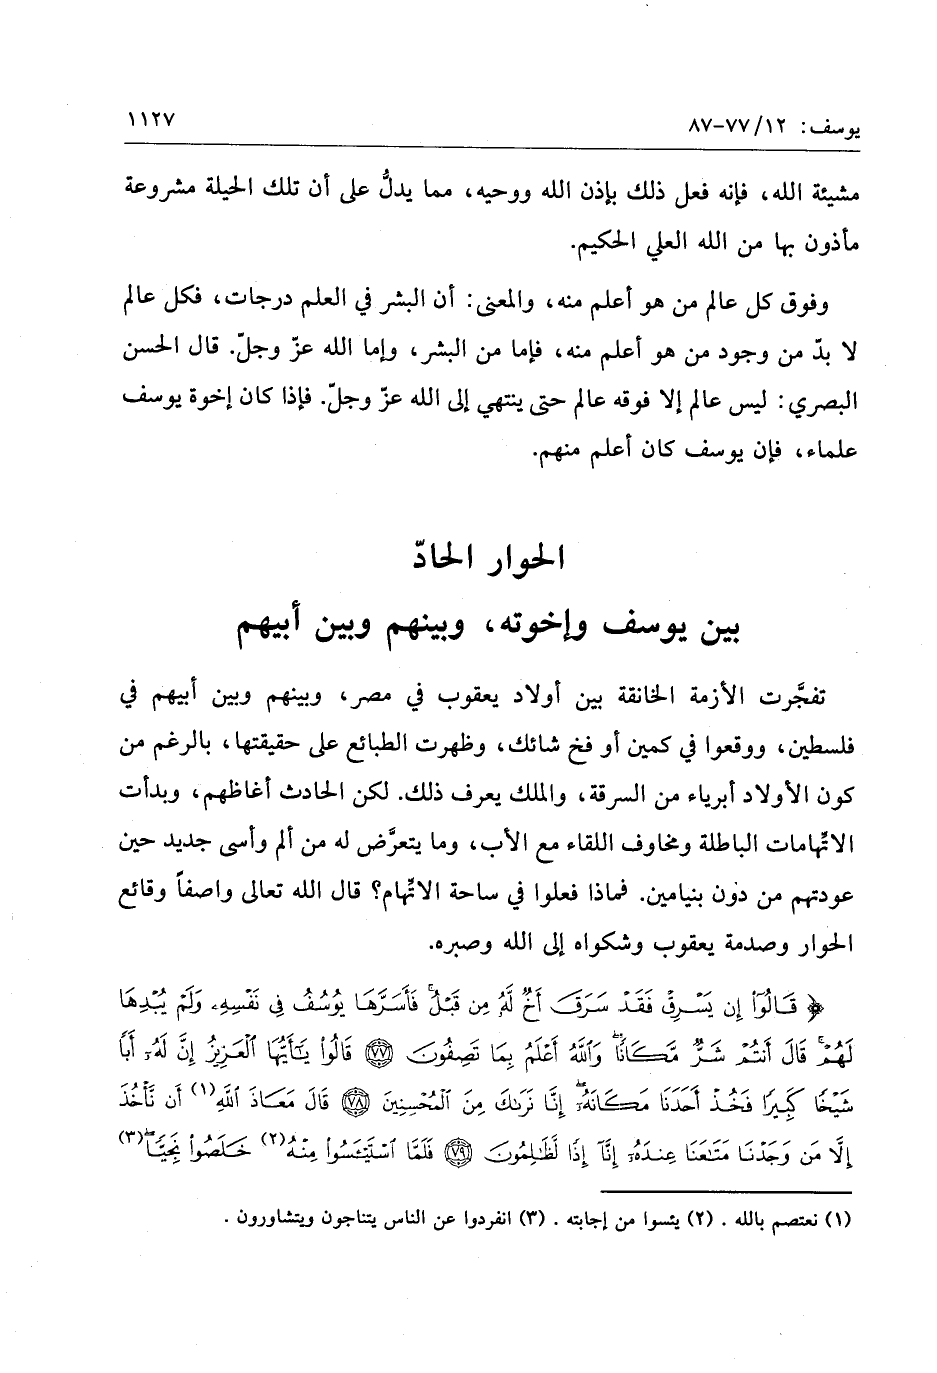 يوسف: ١٢/ ٧٧-٨٧ ١١٢٧
مشيئة الله، فإنه فعل ذلك بإذن الله ووحيه، مما يدلُّ على أن تلك الحيلة مشروعة
مأذون بها من الله العلي الحكيم.
وفوق كل عالم من هو أعلم منه، والمعنى: أن البشر في العلم درجات، فكل عالم
لا بدّ من وجود من هو أعلم منه، فإما من البشر، وإما الله عزّ وجلّ. قال الحسن
البصري: ليس عالم إلا فوقه عالم حتى ينتهي إلى الله عزّ وجلّ. فإذا كان إخوة يوسف
علماء، فإن يوسف كان أعلم منهم.
الحوار الحادّ
بين يوسف وإخوته، وبينهم وبين أبيهم
تفجَّرت الأزمة الخانقة بين أولاد يعقوب في مصر، وبينهم وبين أبيهم في
فلسطين، ووقعوا في كمين أو فخ شائك، وظهرت الطبائع على حقيقتها، بالرغم من
كون الأولاد أبرياء من السرقة، والملك يعرف ذلك. لكن الحادث أغاظهم، وبدأت
الاتِّهامات الباطلة ومخاوف اللقاء مع الأب، وما يتعرَّض له من ألم وأسى جديد حين
عودتهم من دون بنيامين. فماذا فعلوا في ساحة الاتِّهام؟ قال الله تعالى واصفاً وقائع
الحوار وصدمة يعقوب وشكواه إلى الله وصبره.
﴿ قَالُوٓا۟ إِن يَسْرِقْ فَقَدْ سَرَقَ أَخٌ لَّهُۥ مِن قَبْلُ ۚ فَأَسَرَّهَا يُوسُفُ فِى نَفْسِهِۦ وَلَمْ يُبْدِهَا
لَهُمْ ۚ قَالَ أَنتُمْ شَرٌّ مَّكَانًا ۖ وَٱللَّهُ أَعْلَمُ بِمَا تَصِفُونَ ﴿٧٧﴾ قَالُوا۟ يَـٰٓأَيُّهَا ٱلْعَزِيزُ إِنَّ لَهُۥٓ أَبًا
شَيْخًا كَبِيرًا فَخُذْ أَحَدَنَا مَكَانَهُۥٓ ۖ إِنَّا نَرَىٰكَ مِنَ ٱلْمُحْسِنِينَ ﴿٧٨﴾ قَالَ مَعَاذَ ٱللَّهِ(١) أَن نَّأْخُذَ
إِلَّا مَن وَجَدْنَا مَتَـٰعَنَا عِندَهُۥٓ إِنَّآ إِذًا لَّظَـٰلِمُونَ ﴿٧٩﴾ فَلَمَّا ٱسْتَيْـَٔسُوا۟ مِنْهُ(٢) خَلَصُوا۟ نَجِيًّا ۖ(٣)
(١) نعتصم بالله . (٢) يئسوا من إجابته . (٣) انفردوا عن الناس يتناجون ويتشاورون .